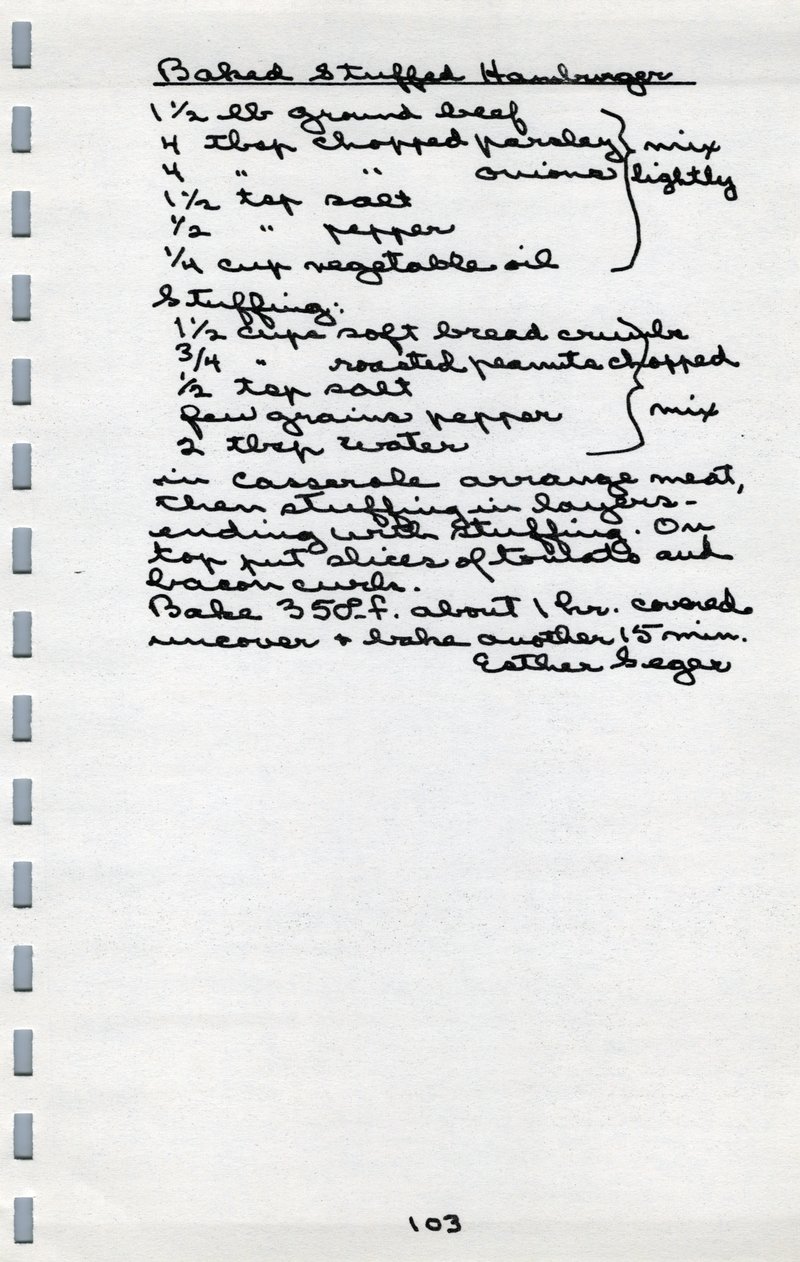 Baked Stuffed Hamburger
1 1/2 lb ground beef
4 tbsp chopped parsley } mix
4 " " onions lightly
1 1/2 tsp salt
1/2 " pepper
1/4 cup vegetable oil
Stuffing:
1 1/2 cups soft bread crumbs
3/4 " roasted peanuts chopped
1/2 tsp salt
few grains pepper } mix
2 tbsp water
in casserole arrange meat,
then stuffing in layers -
ending with stuffing. On
top put slices of tomato and
bacon curls.
Bake 350° f. about 1 hr. covered
uncover & bake another 15 min.
Esther Seger
103